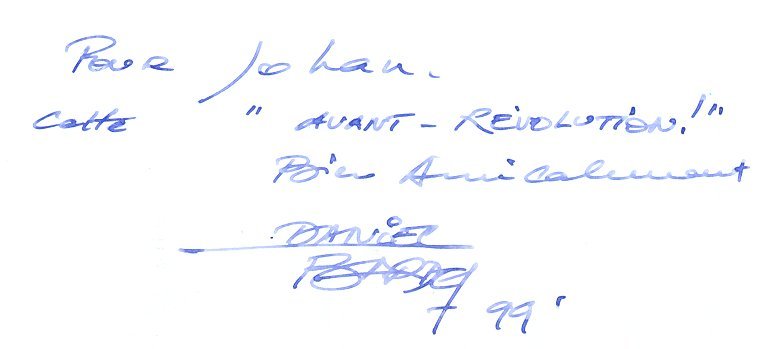 Pour Johan.
Cette " AVANT - RÉVOLUTION! "
Bien Amicalement
DANIEL
99'